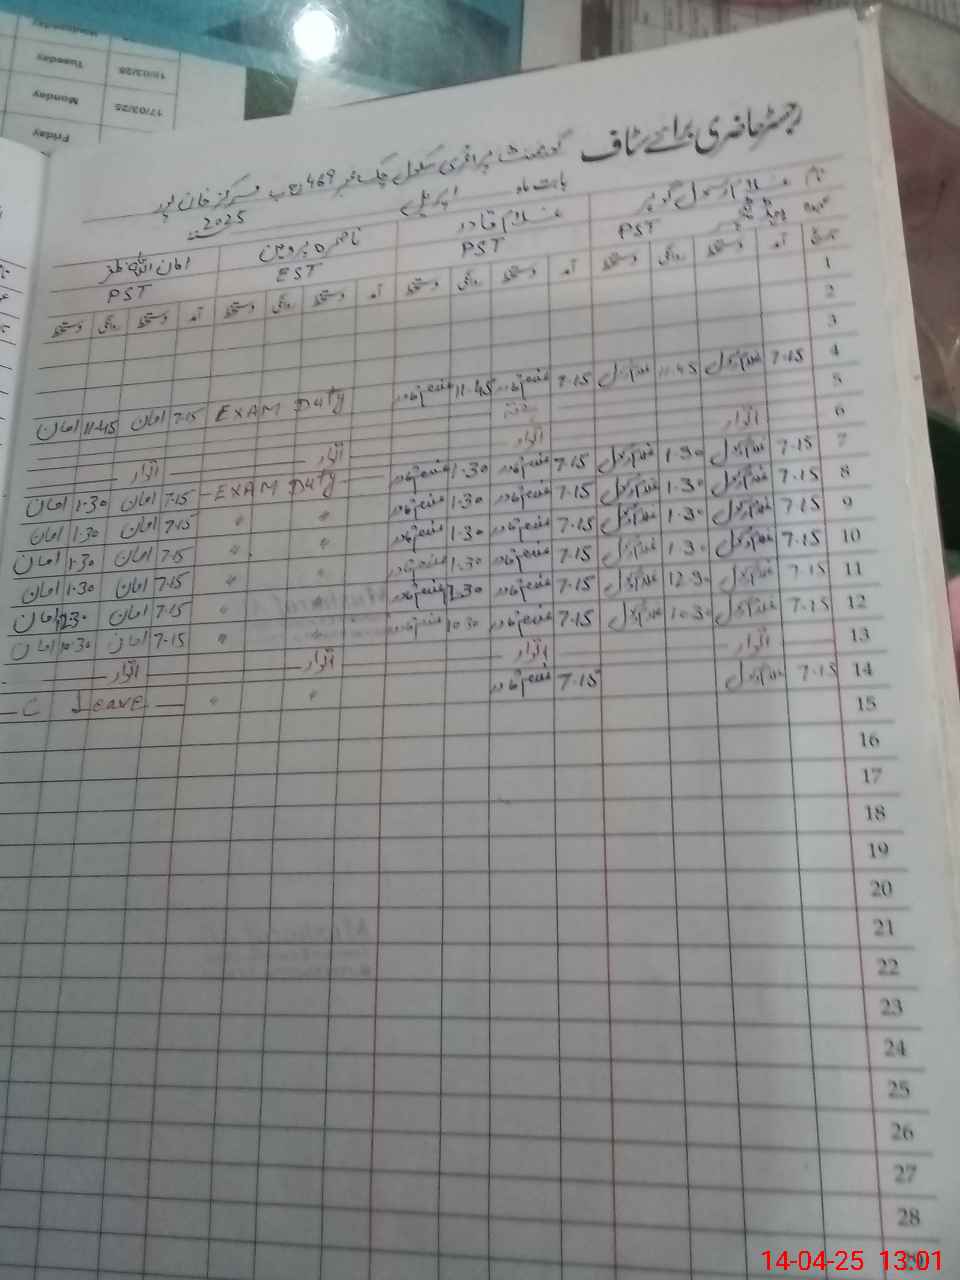 Wednesday
Tuesday 18/03/25
Monday 17/03/25
Friday
رجسٹر حاضری برائے سٹاف
گورنمنٹ پرائمری سکول چک نمبر 469 ج ب مرکز خان پور
بابت ماہ اپریل 2025
نام غلام رسول گوہر غلام قادر ناصرہ پروین امان اللہ ظفر
عہدہ PST PST EST PST
تاریخ آمد دستخط روانگی دستخط آمد دستخط روانگی دستخط آمد دستخط روانگی دستخط آمد دستخط روانگی دستخط
1
2
3
4 7.15 غلام رسول 11.45 غلام رسول 7.15 غلام قادر 11.45 غلام قادر EXAM Duty 7.15 امان 11.45 امان
5
6 اتوار اتوار اتوار اتوار
7 7.15 غلام رسول 1.30 غلام رسول 7.15 غلام قادر 1.30 غلام قادر EXAM Duty 7.15 امان 1.30 امان
8 7.15 غلام رسول 1.30 غلام رسول 7.15 غلام قادر 1.30 غلام قادر " " 7.15 امان 1.30 امان
9 7.15 غلام رسول 1.30 غلام رسول 7.15 غلام قادر 1.30 غلام قادر " " 7.15 امان 1.30 امان
10 7.15 غلام رسول 1.30 غلام رسول 7.15 غلام قادر 1.30 غلام قادر " " 7.15 امان 1.30 امان
11 7.15 غلام رسول 12.30 غلام رسول 7.15 غلام قادر 12.30 غلام قادر " " 7.15 امان 12.30 امان
12 7.15 غلام رسول 10.30 غلام رسول 7.15 غلام قادر 10.30 غلام قادر " " 7.15 امان 10.30 امان
13 اتوار اتوار اتوار اتوار
14 7.15 غلام رسول 7.15 غلام قادر " " C Leave
15
16
17
18
19
20
21
22
23
24
25
26
27
28
29
14-04-25 13:01